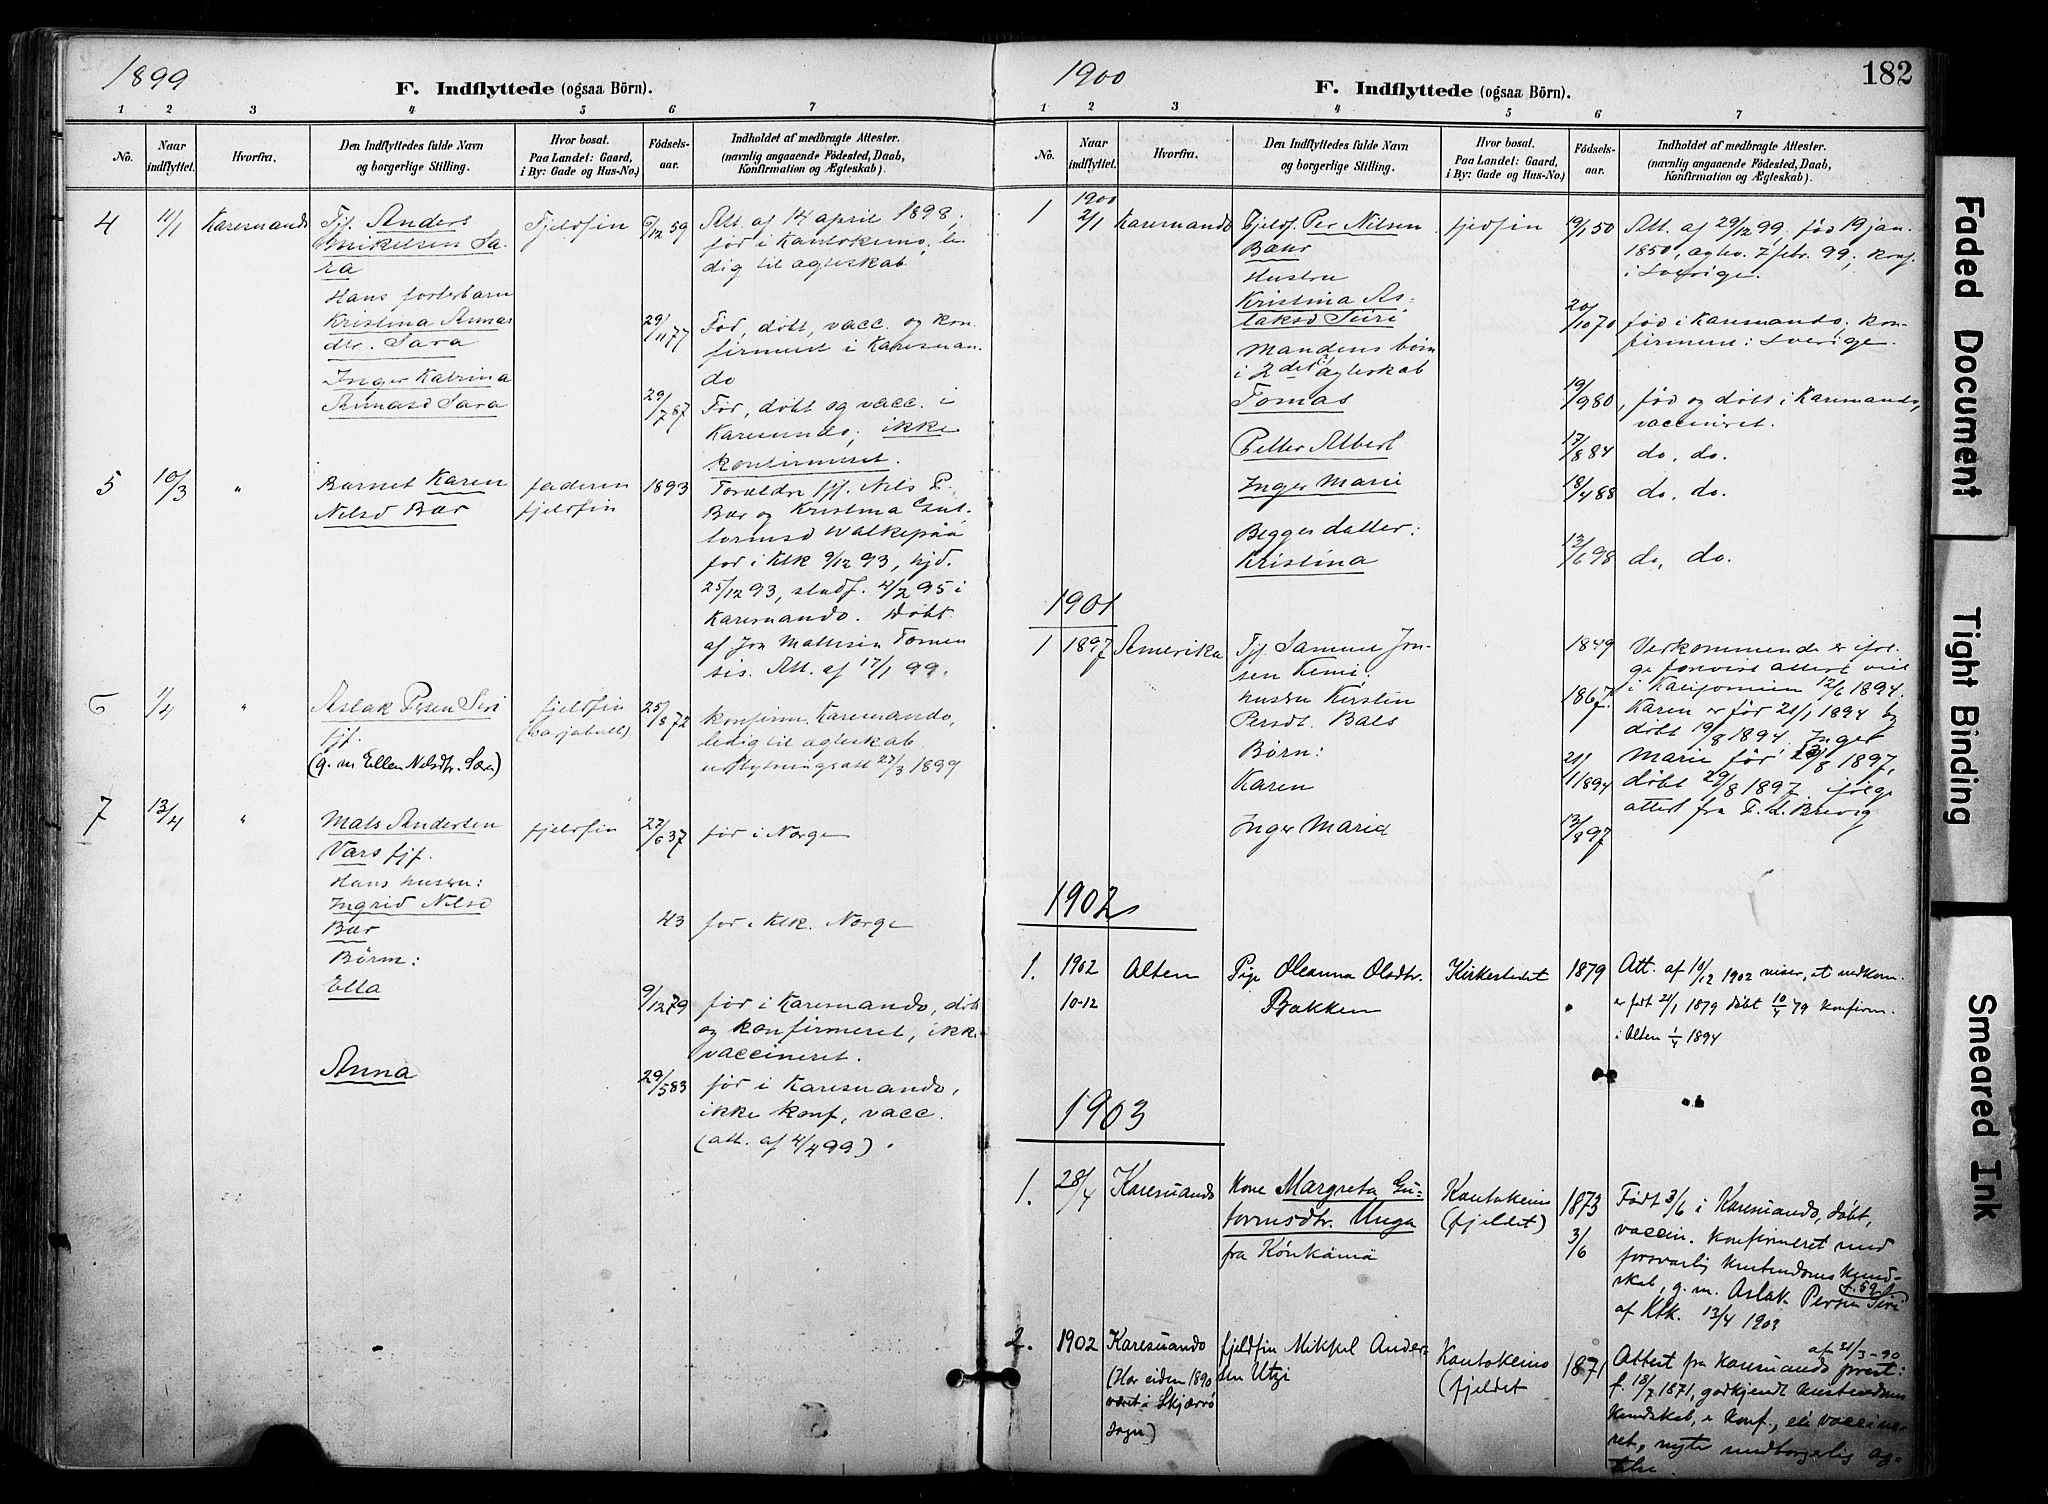 1899
F. Indflyttede (ogsaa Börn).
1 2 3 4 5 6 7
No.
Naar indflyttet.
Hvorfra.
Den Indflyttedes fulde Navn
og borgerlige Stilling.
Hvor bosat.
Paa Landet: Gaard,
i By: Gade og Hus-No.)
Födsels-
aar.
Indholdet af medbragte Attester.
(navnlig angaaende Födested, Daab,
Konfirmation og Ægteskab).
4 11/1 Karesuando
Fjf. Anders
Mikkelsen Sa-
ra
Fjeldfin
6/12 59
Att. af 14 april 1898,
fød i Kautokeino, le-
dig til ægteskab
Hans fosterbarn
Kristina Annas
dtr. Sara
29/11 77
Fød, døbt, vacc. og kon-
firmeret i Karesuan-
do
Inger Katrina
Annasd Sara
29/7 87
Fød, døbt og vacc. i
Karesundo, ikke
konfirmeret.
5 10/3 "
Barnet Karen
Nilsd Bær
faderen
fjeldfin
1893
Forældre fjf. Nils P.
Bær og Kristina Gut-
tormsd Walkepää
fød i Ktk 9/12 93, hjd.
25/12 93, stadf. 4/2 95 i
Karesuando. Døbt
af Jon Mathisen Tornen
sis. Att. af 17/1 99.
6 1/4 "
Aslak Persen Siri
fjf.
(g. m Ellen Nilsdtr. Sara)
fjeldfin
25/8 72
konfirm. Karesuando,
ledig til ægteskab
udflytningsatt 27/3 1899
7 13/4 "
Mats Andersen
Vars fjf.
fjeldfin
22/6 37
fød i Norge
Hans hustru:
Ingrid Nilsd
Bær
43
fød i Ktk. Norge
Børn:
Ella
9/12 79
fød i Karesuando, døbt
og konfirmeret, ikke
vaccineret.
Anna
29/5 83
fød i Karesuando,
ikke konf, vacc.
(att. af 4/4 99).
1900
F. Indflyttede (ogsaa Börn).
182
1 2 3 4 5 6 7
No.
Naar
indflyttet.
Hvorfra.
Den Indflyttedes fulde Navn
og borgerlige Stilling.
Hvor bosat.
Paa Landet: Gaard,
i By: Gade og Hus-No.)
Födsels-
aar.
Indholdet af medbragte Attester.
(navnlig angaaende Födested, Daab,
Konfirmation og Ægteskab).
1 1900 2/1 Karesuando
Fjeldf. Per Nilsen
Bær
fjeldfin
19/1 50
Att. af 29/12 99. fød 19 jan.
1850, ægtev. 7 febr. 99; konf.
i Sverige.
Hustru
Kristina As-
laksd Siri
20/10 70
fød i Karesuando, kon-
firmeret i Sverige.
Mandens børn
i 2det ægteskab
Tomas
19/9 80
fød og døbt i Karesuando,
vaccineret.
Petter Albert
17/8 84
do, do.
Inger Marie
18/4 88
do, do.
Begges datter:
Kristina
13/6 98
do, do.
1901
1 1897 Amerika
Fjf Samuel Jon-
sen Kemi.
1849
Vedkommende er iføl-
ge forevist attest viet
i Kalifornien 12/6 1894.
hustru Kirsten
Persdt. Bals
1867.
Karen er fød 21/1 1894 og
døbt 19/8 1894. Inger
Børn:
Karen
21/1 1894
Marie fød 13/8 1897,
døbt 29/8 1897 ifølge
attest fra T. L. Brevig
Inger Maria
13/8 97
1902
1. 1902 10-12
Alten
Pige Oleanna Olsdtr.
Bakken
Kirkestedet
1879
Att. af 10/12 1902 viser, at vedkom.
er født 21/1 1879 døbt 10/4 79 konfirm.
i Alten 1/4 1894
1903
1. 28/4 Karesuando
Kone Margreta Gu-
tormsdtr. Unga
fra Könkämä
Kautokeino
(fjeldet)
1873
3/6
Født 3/6 i Karesuando, døbt,
vaccin. konfirmeret med
forsvarlig kristendomskund-
skab, g. m. Aslak Persen Siri f. 59
af Ktk. 13/4 1903
2. 1902 Karesuando
(Har siden 1890
været i Skjærvø
sogn)
fjeldfin Mikkel Ander-
sen Utzi
Kautokeino
(fjeldet
1871
Attest fra Karesuando prest af 21/3-90:
f. 18/7 1871, godkjendt kristendoms
kundskab, er konf., ei vaccine-
ret, nyte medborgerlig ag-
telse.
Faded Document
Tight Binding
Smeared Ink